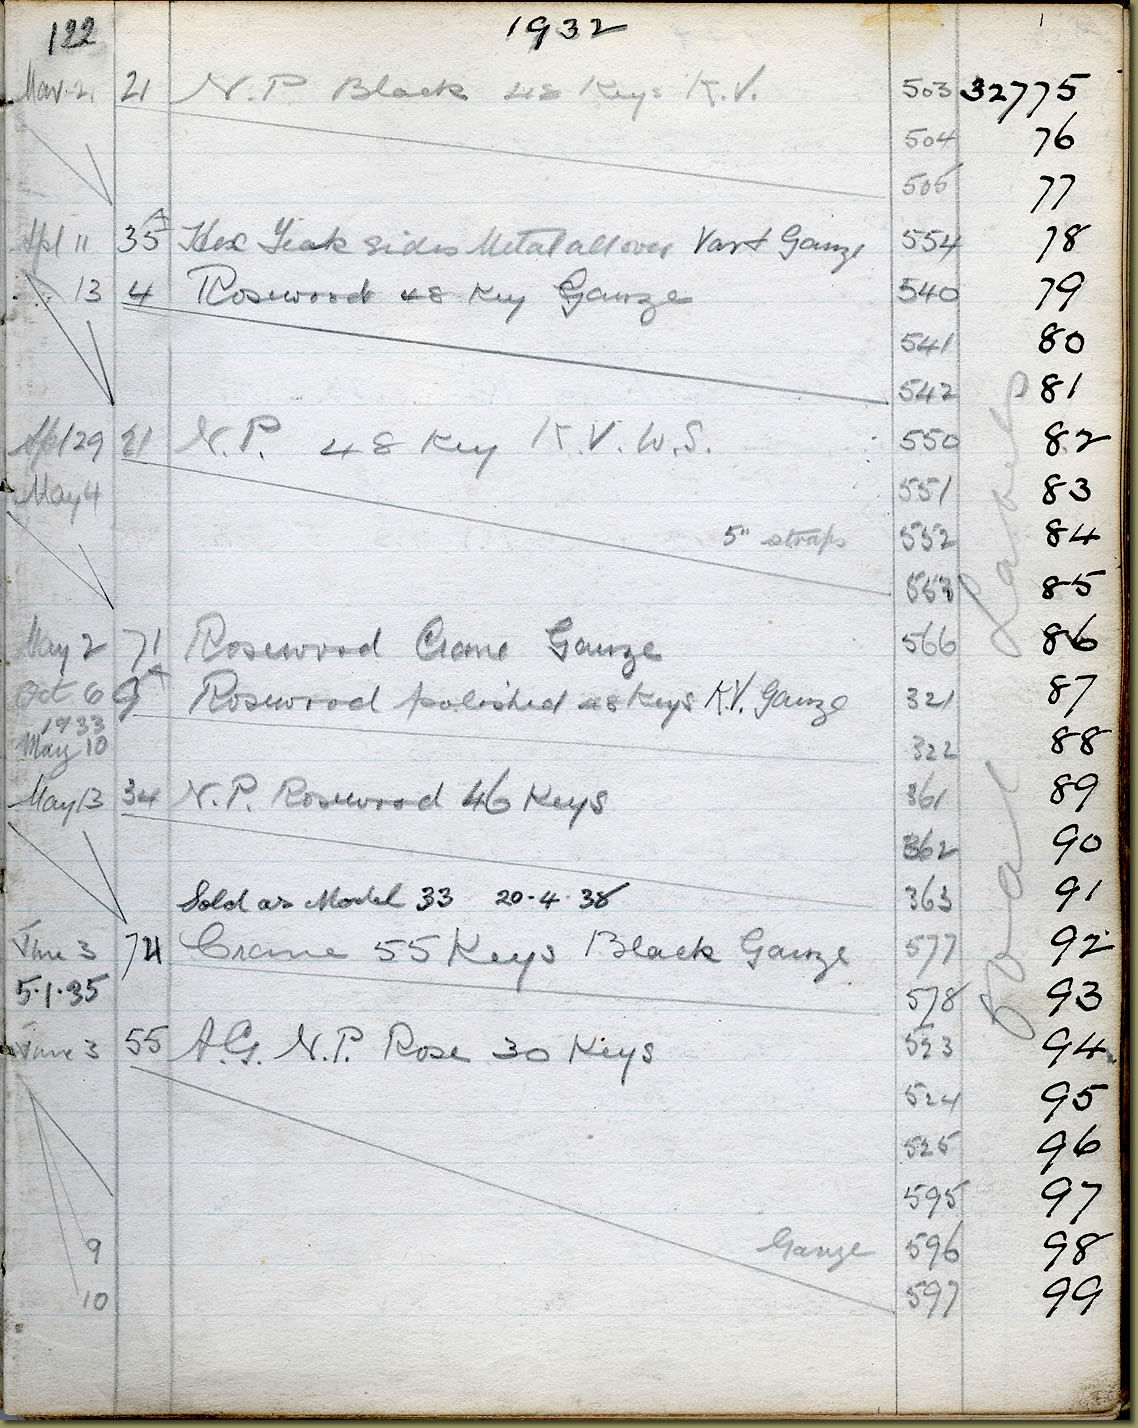 122 1932
Mar. 2. 21 N.P. Black 48 Keys K.V. 503 32775
504 76
505 77
Apl 11 35A Hex Teak sides Metal all over Vart Gauze 554 78
13 4 Rosewood 48 Key Gauze 540 79
541 80
542 81
Apl 29 21 N.P. 48 Key K.V. W.S. 550 82
May 4 551 83
5" straps 552 84
553 85
May 2 71 Rosewood Crane Gauze 566 86
Oct 6 9A Rosewood polished 48 Keys K.V. Gauze 321 87
1933
May 10 322 88
May 13 34 N.P. Rosewood 46 Keys 361 89
362 90
Sold as Model 33 20-4-38 363 91
June 3 74 Crane 55 Keys Black Gauze 577 92
5.1.35 578 93
June 3 55 A.G. N.P. Rose 30 Keys 523 94
524 95
525 96
595 97
9 Gauze 596 98
10 597 99
Oval Labels